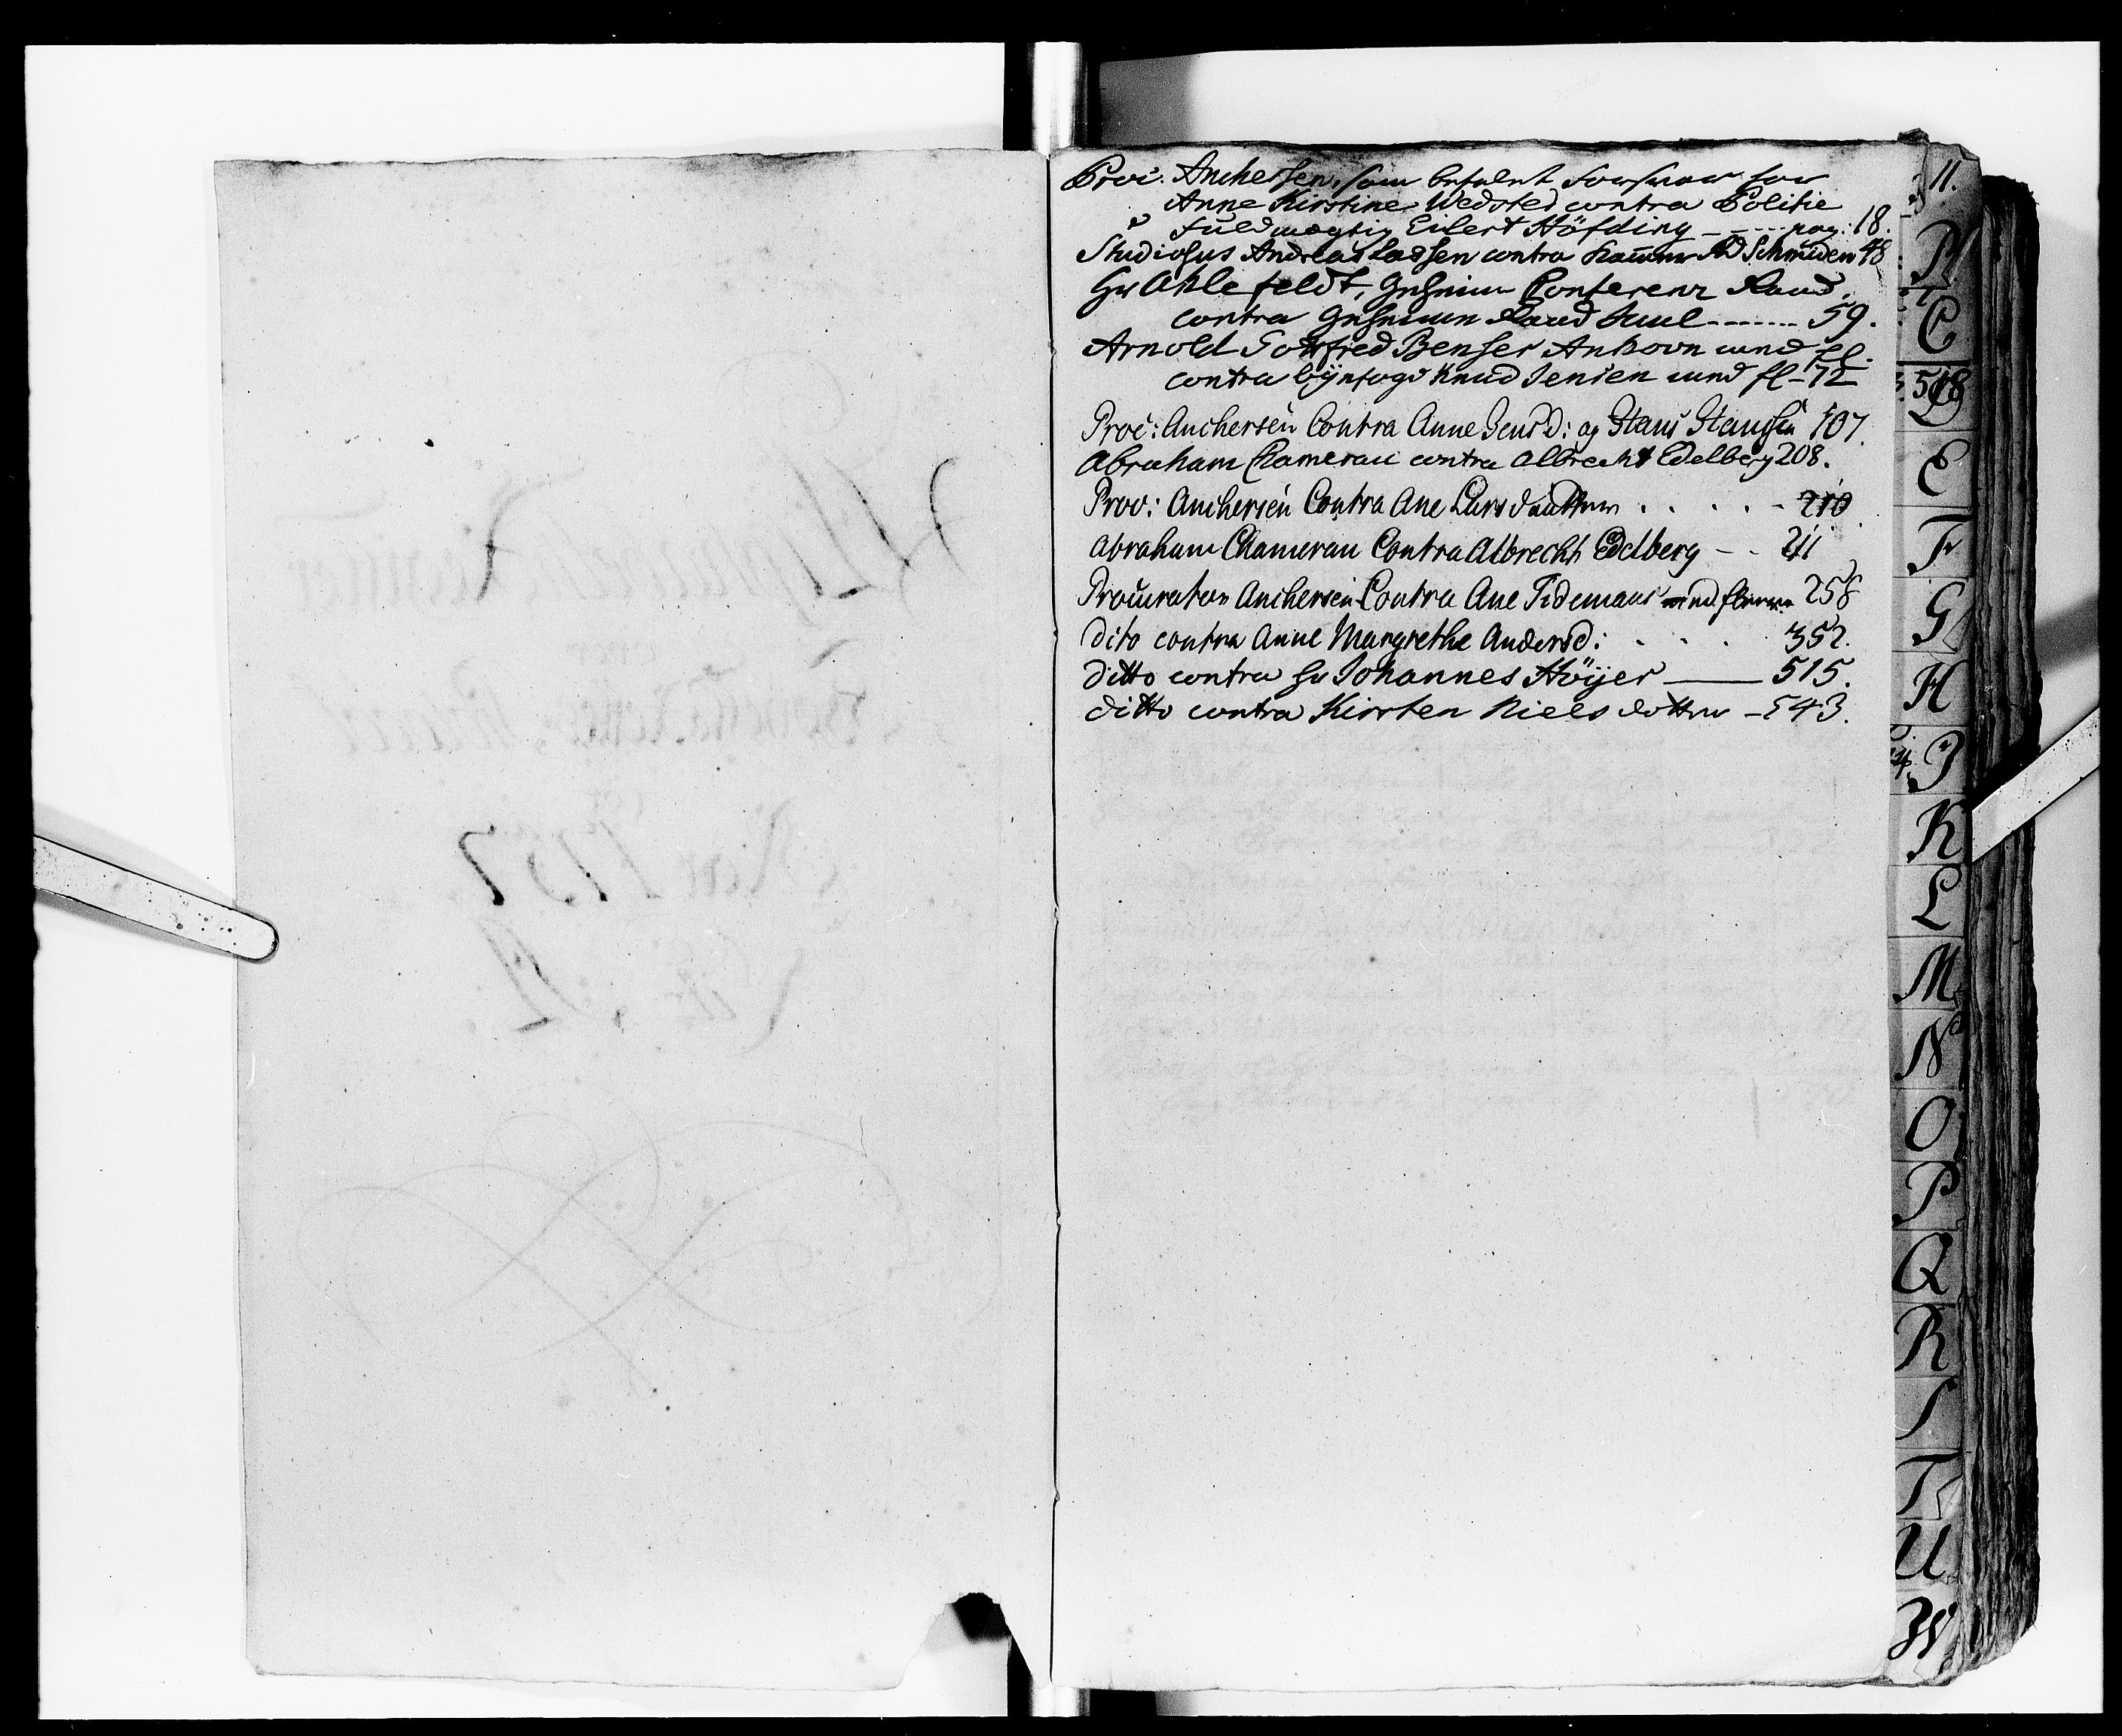 Proc: Anchersen, som befalet Forsvar for
Anne Kirstine Wedsted contra Politie
Fuldmægtig Eilert Höfding - - - - pag: 18.
Studiosus Andreas Lassen contra Schmiden 48
Hr Ahlefeldt, Geheime Conferenz Raad
contra Geheime Raad Juul - - - - - 59.
Arnold Gottfred Benser Ankorn med fl.
contra Bÿefogd Knud Jensen med fl - 72
Proc: Anchersen Contra Anne Jens d: og 107.
Abraham Chamerau contra Albrecht Edelberg 208.
Proc: Anchersen Contra Ane Lars daatter . . . . . 210
Abraham Chamerau Contra Albrecht Edelberg - - 211
Procurator Anchersen Contra Ane Tidemans med fleere 258
Dito contra Anne Margrethe Anders d: . . . 352.
Ditto contra Hr Johannes Höÿer — 515.
Ditto contra Kirsten Niels dotter - 543.
11.
B
C
518
D
E
F
G
H
J
K
L
M
N
O
P
Q
R
S
T
U
W